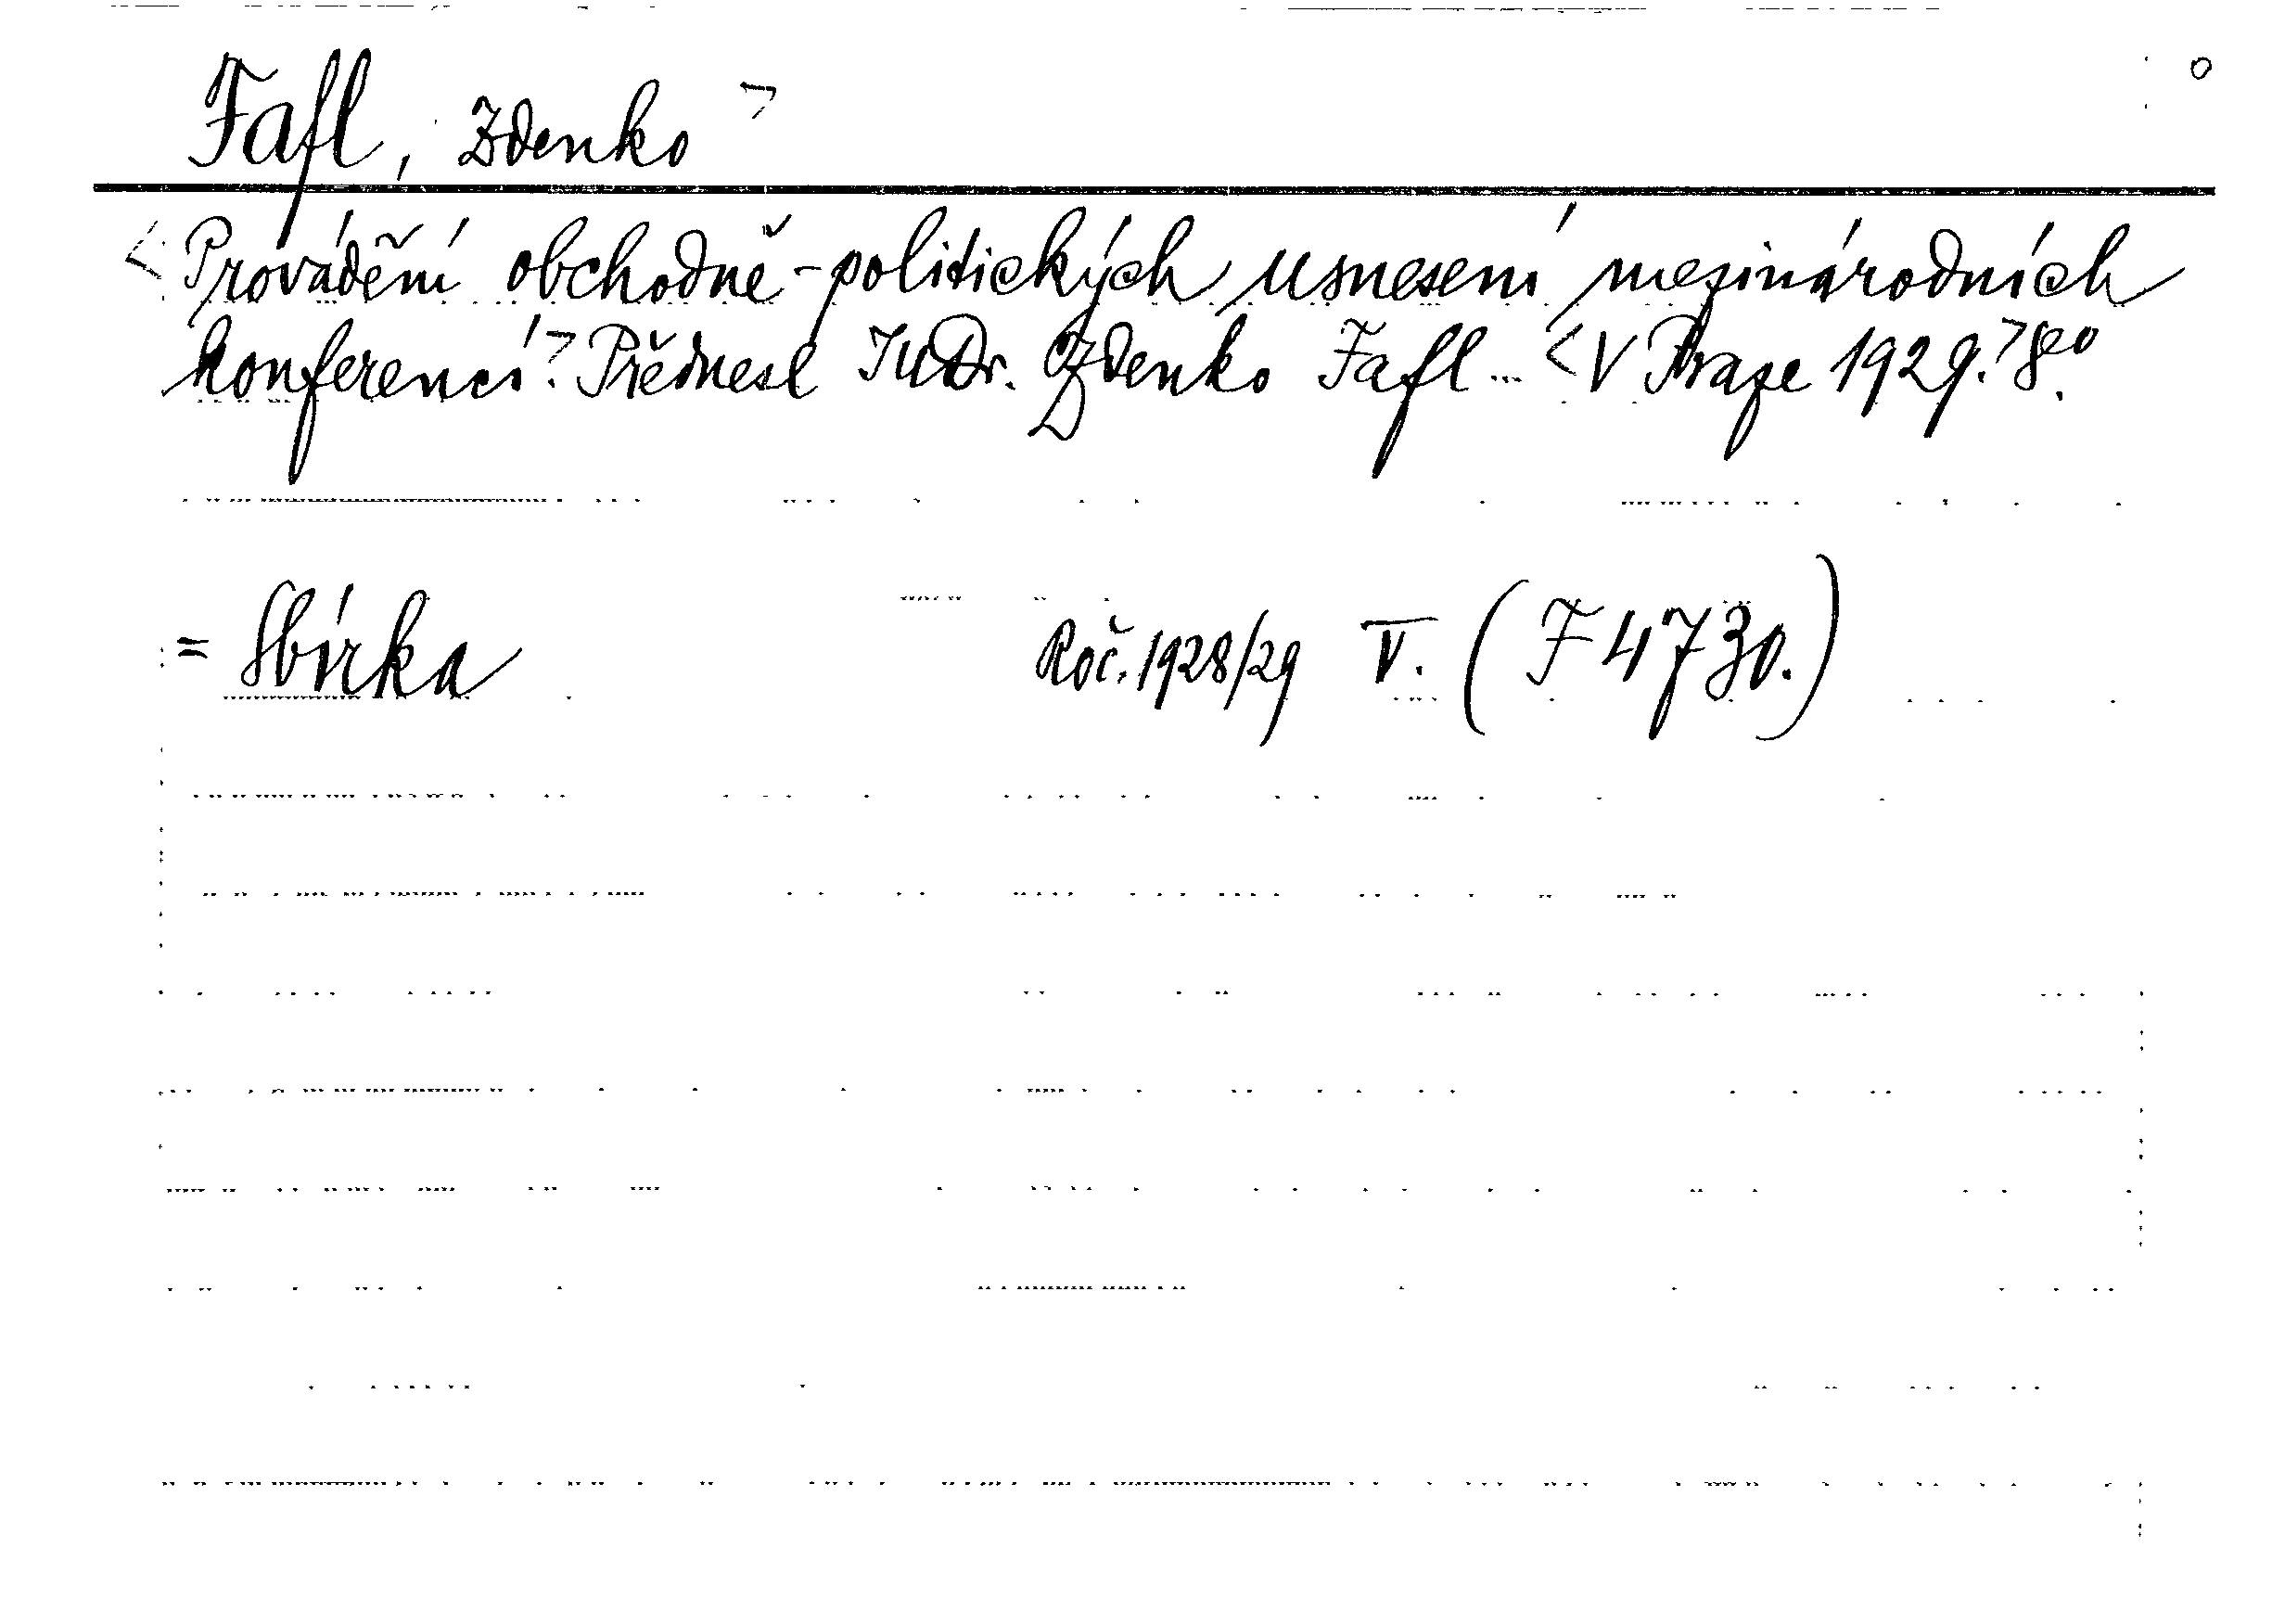 Fafl, Zdenko >
< Provádění obchodně-politických usnesení mezinárodních
konferencí.> Přednesl JUDr. Zdenko Fafl... < V Praze 1929.> 8°.
= Sbírka Roč. 1928/29 V. (F 4730.)